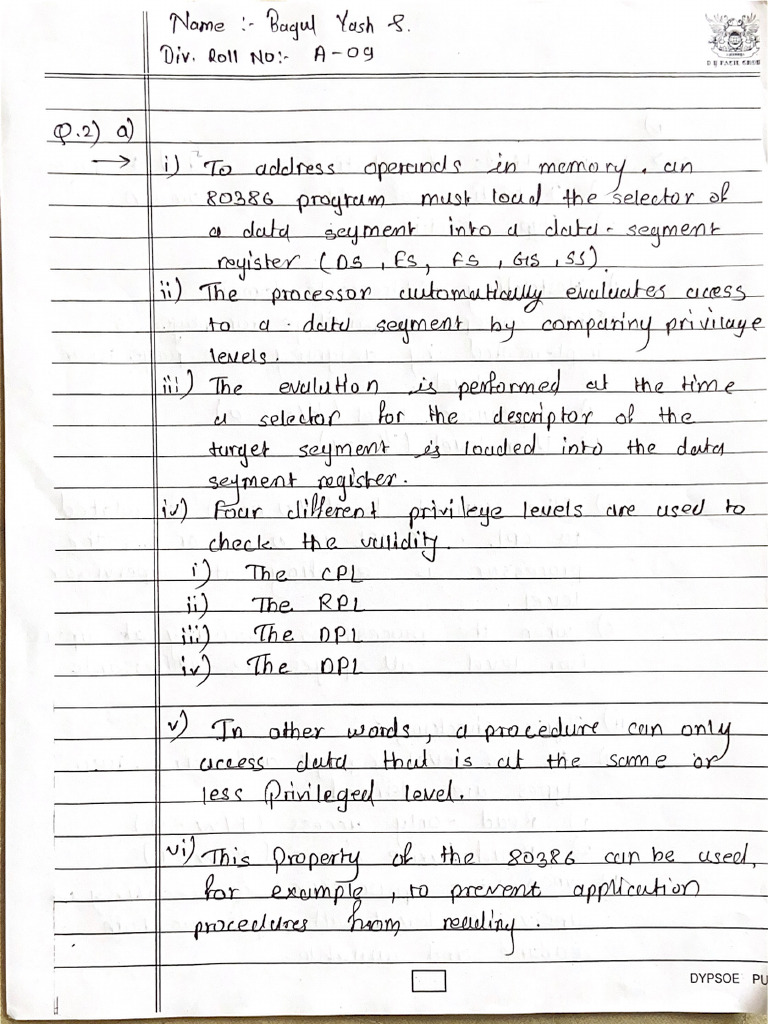 Name :- Bagul Yash S.
Div. Roll No:- A-09
D Y PATIL GROUP
Q.2) a)
→ i) To address operands in memory. an
80386 program must load the selector of
a data segment into a data-segment
register (DS, ES, FS, GS, SS).
ii) The processor automatically evaluates access
to a data segment by comparing privilage
levels.
iii) The evalution is performed at the time
a selector for the descriptor of the
target segment is loaded into the data
segment register.
iv) Four different privilege levels are used to
check the validity.
i) The CPL
ii) The RPL
iii) The DPL
iv) The DPL
v) In other words, a procedure can only
access data that is at the same or
less Privileged level.
vi) This Property of the 80386 can be used,
for example, to prevent application
procedures from reading.
DYPSOE PU